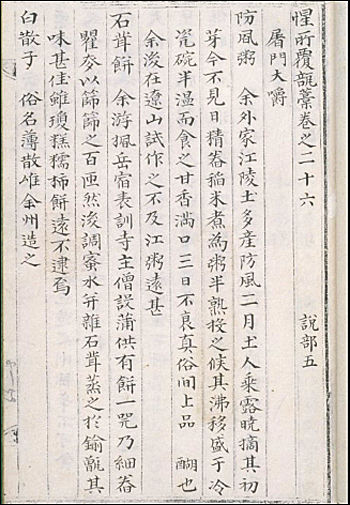 惺所覆瓿藁卷之二十六 說部五
屠門大嚼
防風粥 余外家江陵土多産防風二月土人乘露曉摘其初
芽令不見日精舂稻米煮為粥半熟投之候其沸移盛于冷
瓷碗半温而食之甘香滿口三日不衰真俗間上品 醐也
余後在遼山試作之不及江粥遠甚
石茸餅 余游楓岳宿表訓寺主僧設蒲供有餅一咒乃細舂
瞿麥以篩篩之百匝然後調蜜水并雜石茸蒸之於鍮甑其
味甚佳雖瓊糕糯柿餅遠不逮焉
白散子 俗名薄散唯全州造之